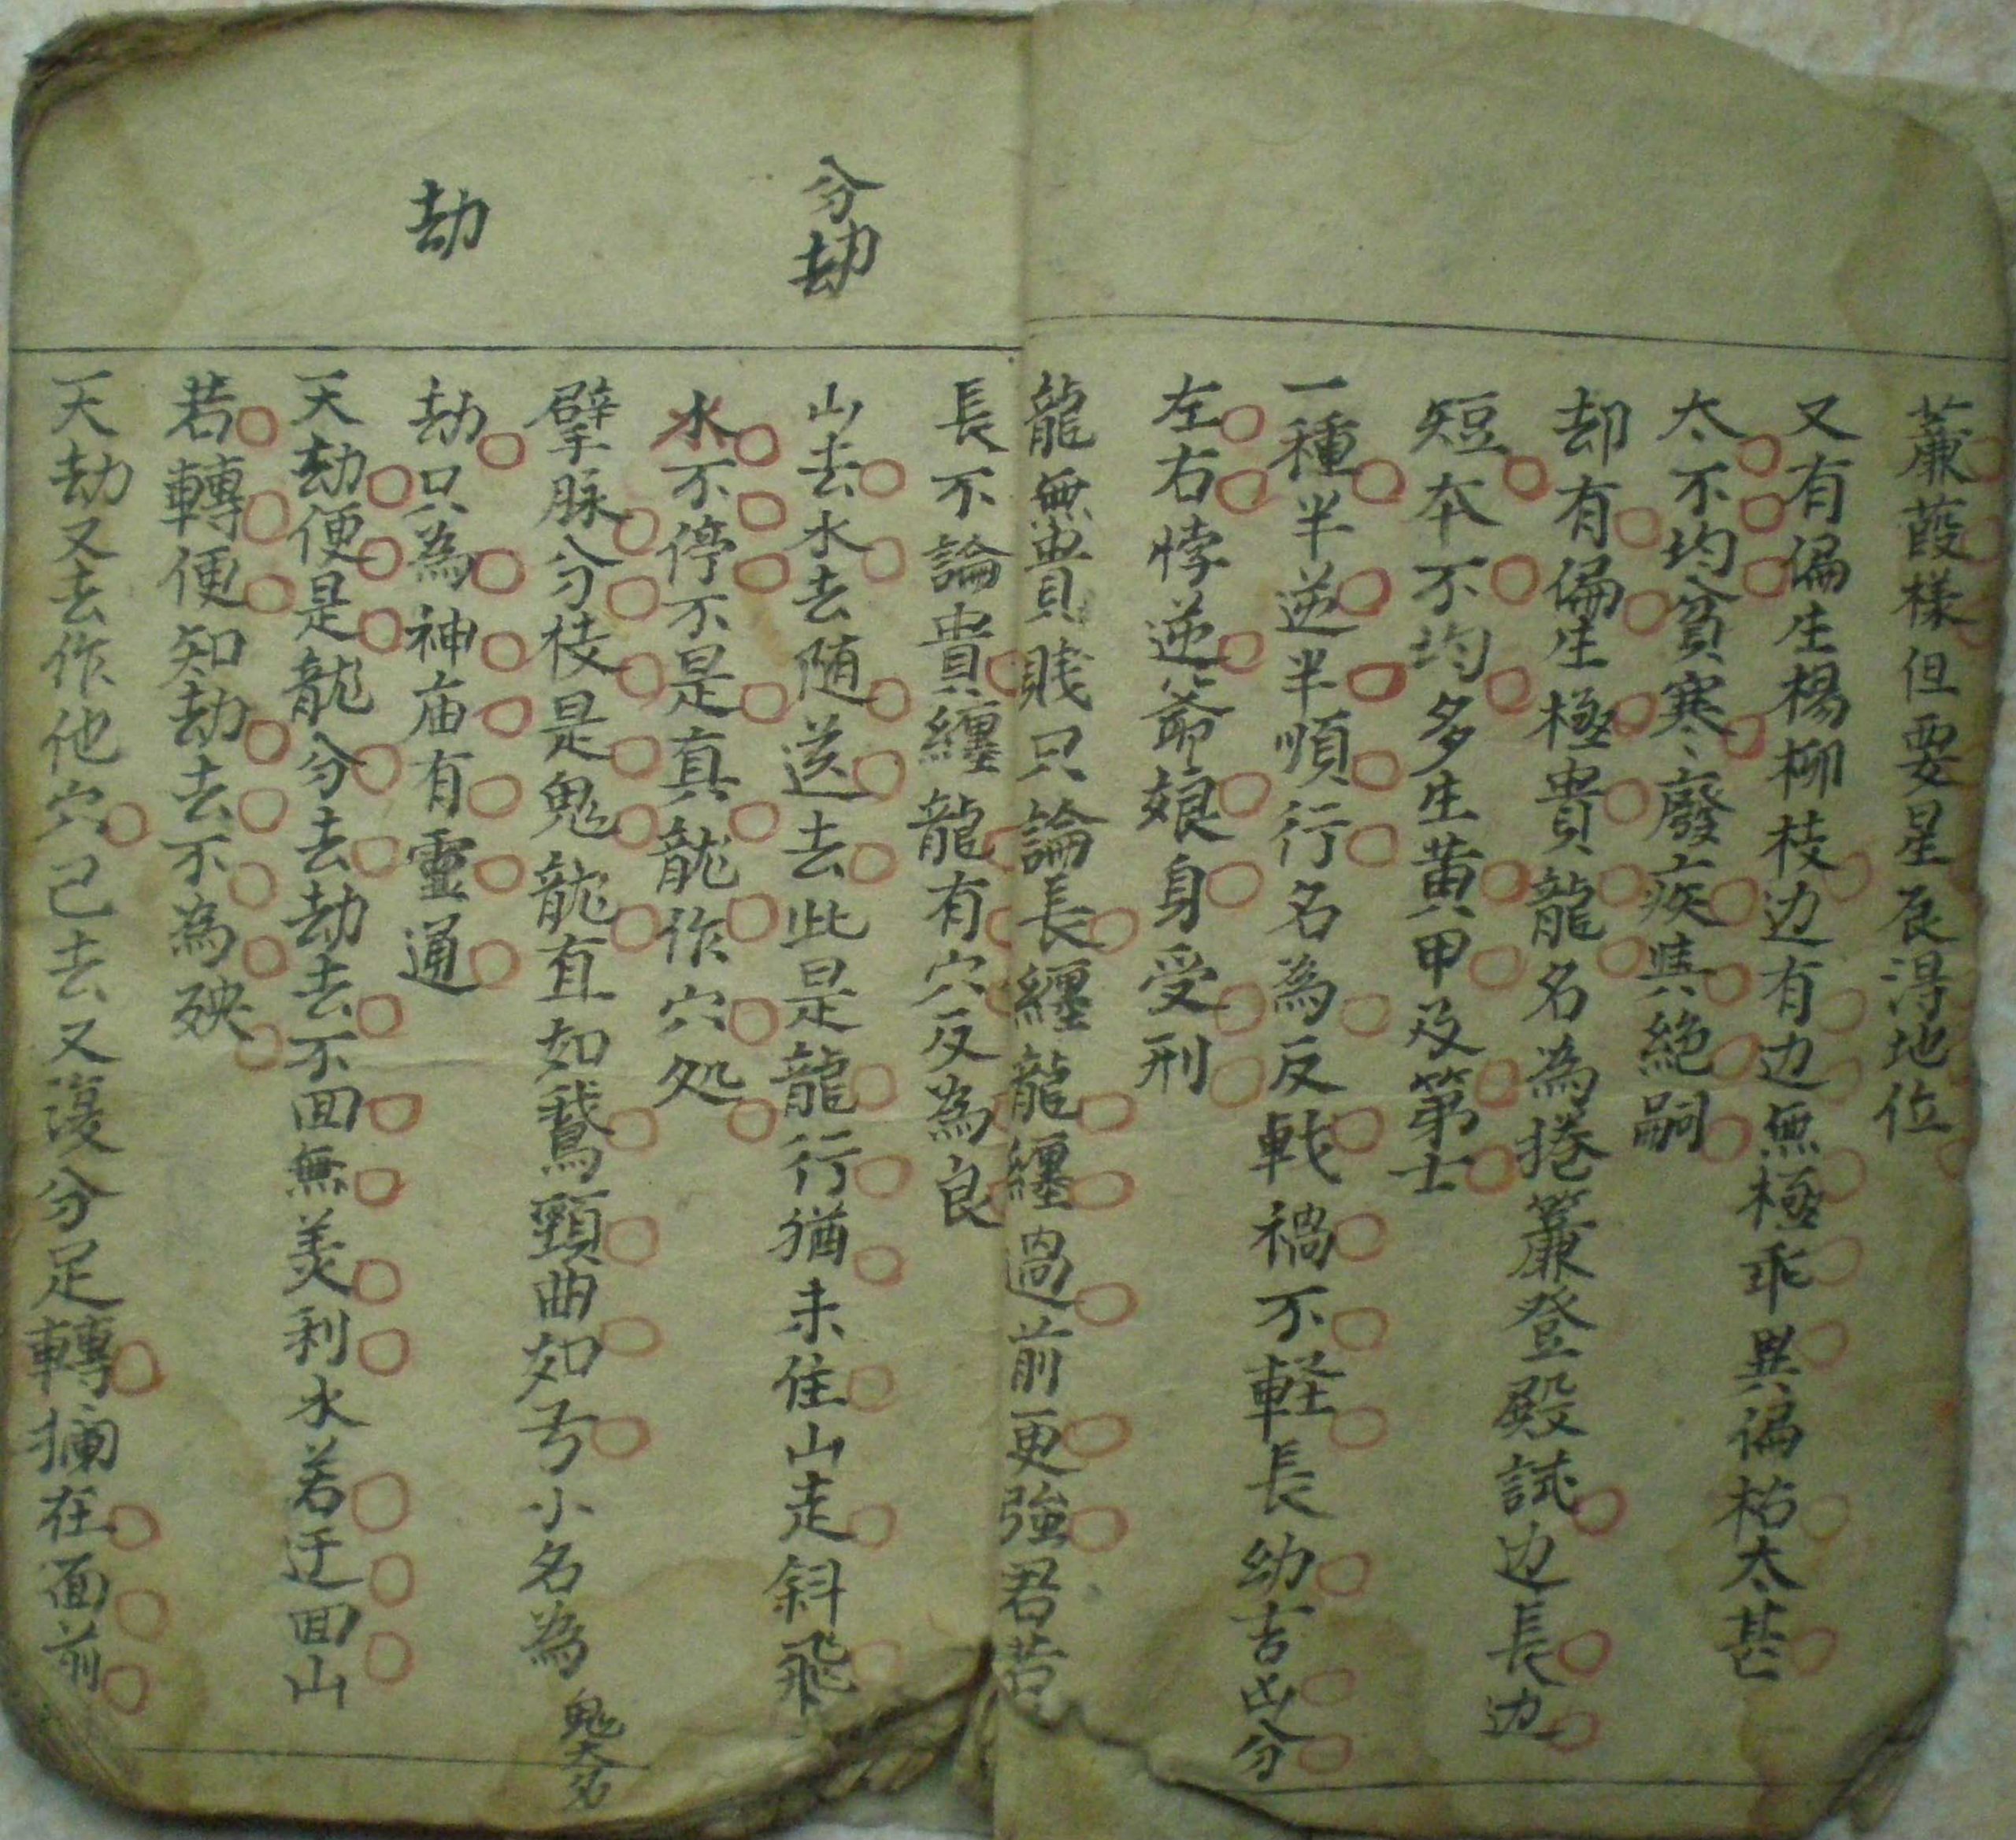 蒹葭樣但要星辰淂地位
又有偏生楊柳枝边有边無極乖異偏枯太甚
太不均貧寒廢疾與絕嗣
却有偏生極貴龍名為捲簾登殿試边長边
短本不均多生黄甲及第士
一種半逆半順行名為反戟禍不軽長幼吉凶分
左右悖逆爺娘身受刑
龍無貴賎只論長纏龍纏過前更強君若
長不論貴纏龍有穴反為良
分劫
山去水去随送去此是龍行猶未住山走斜飛
水不停不是真龍作穴処
擘脉分枝是鬼龍直如鵞頸曲如弓小名為鬼大名
劫
劫只為神庙有靈通
天劫便是龍分去劫去不回無美利水若迂回山
若轉便知劫去不為殃
天劫又去作他穴己去又復分足轉攔在面前